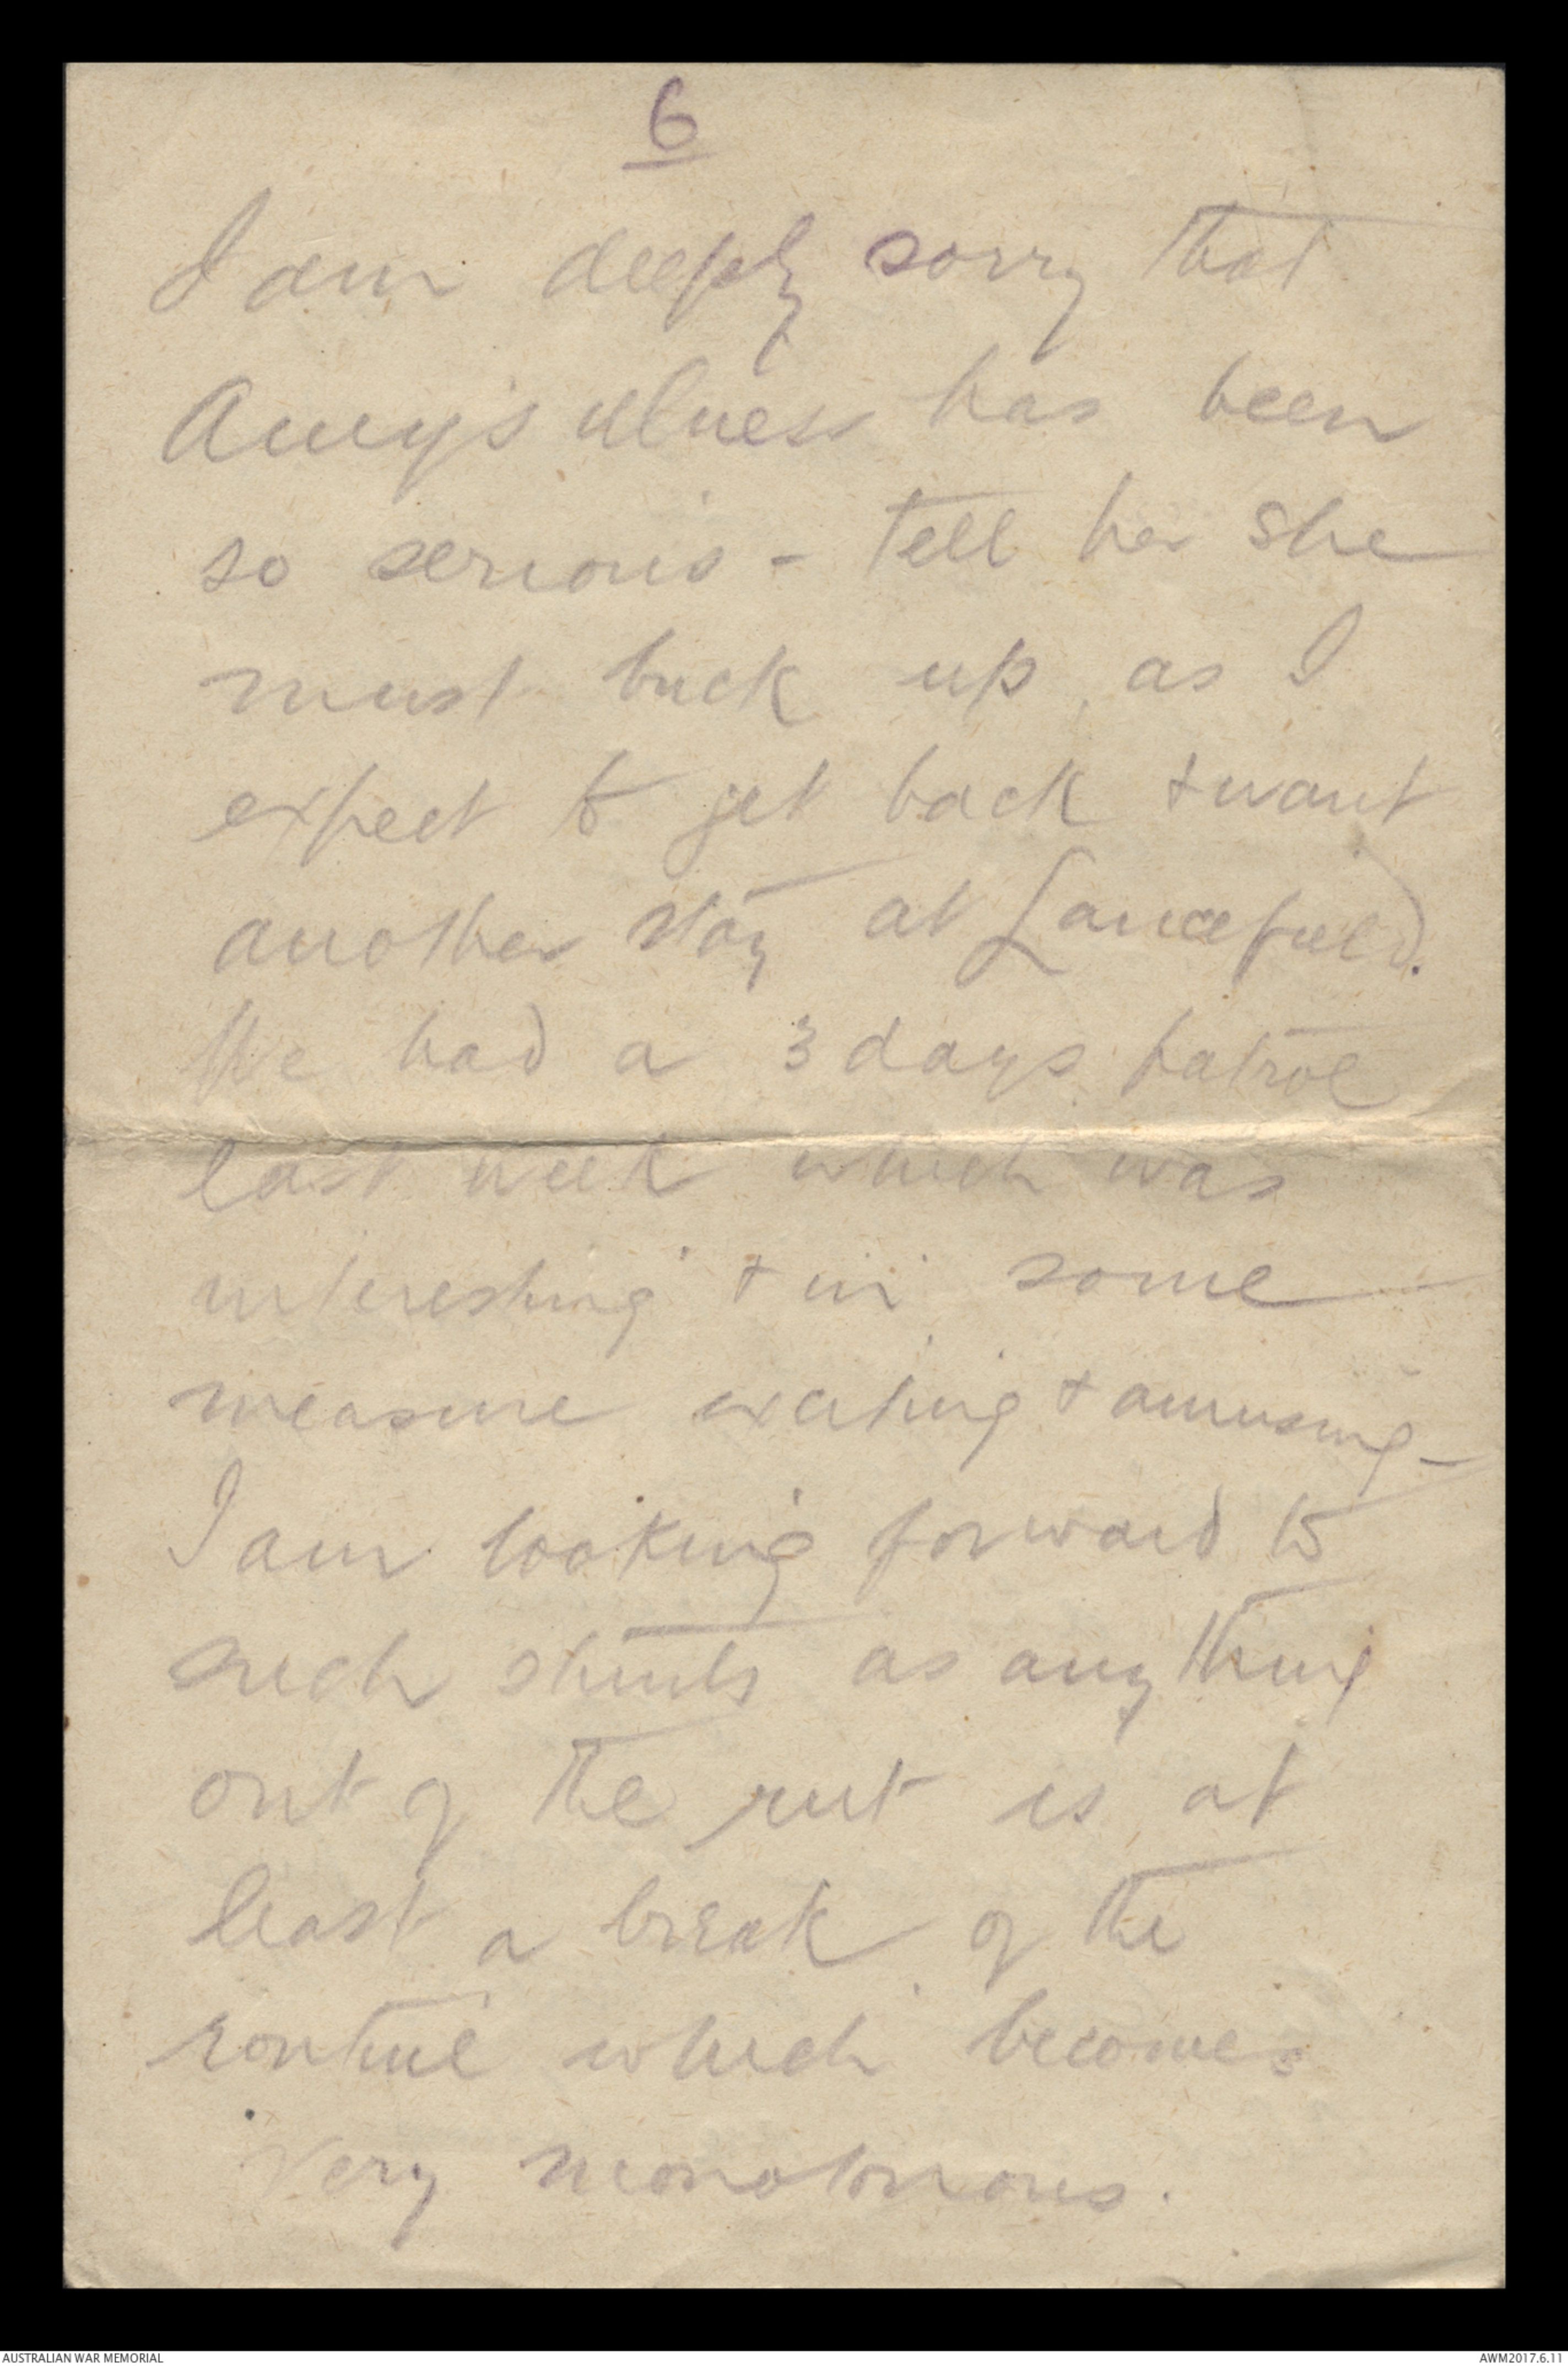 6
I am deeply sorry that
Amy's illness has been
so serious - tell her she
must buck up, as I
expect to get back + want
another stay at Lancefield.
We had a 3 days patrol
last week which was
interesting + in some
measure exciting + amusing -
I am looking forward to
such stunts as anything
out of the rut is at
least a break of the
routine which becomes
very monotonous.
AUSTRALIAN WAR MEMORIAL
AWM2017.6.11